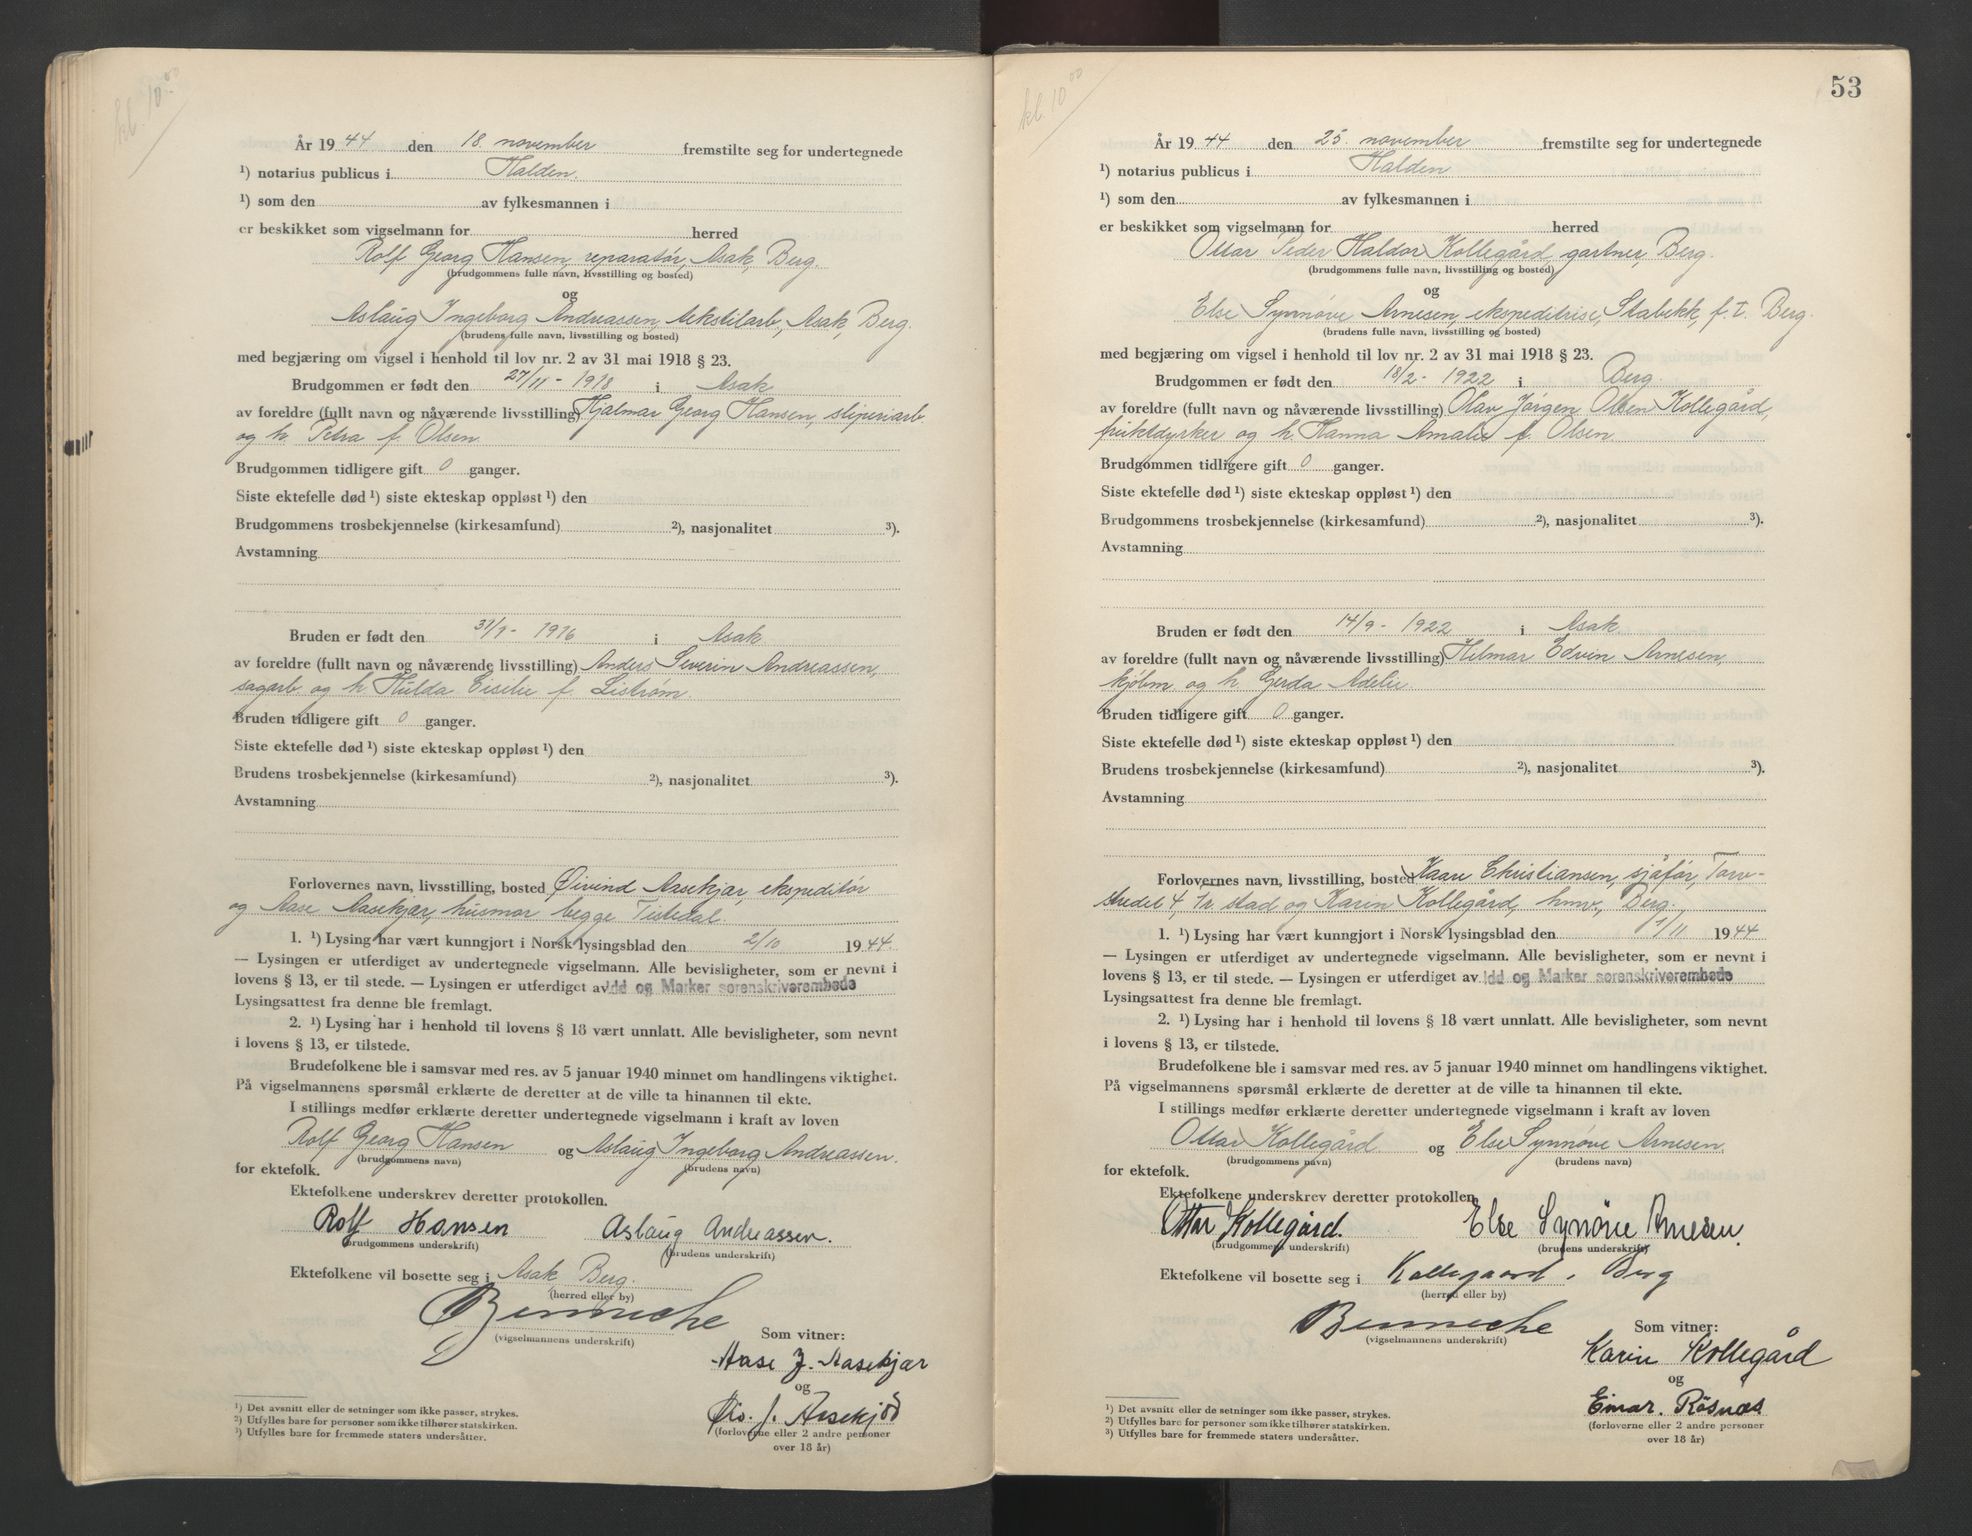 kl. 10 00
År 1944 den 18. november fremstilte seg for undertegnede
1) notarius publicus i Halden.
1) som den av fylkesmannen i
er beskikket som vigselmann for herred
Rolf Georg Hansen, reparatør, Asak, Berg.
(brudgommens fulle navn, livsstilling og bosted)
og
Aslaug Ingeborg Andreassen, tekstilarb, Asak, Berg.
(brudens fulle navn, livsstilling og bosted)
med begjæring om vigsel i henhold til lov nr. 2 av 31 mai 1918 § 23.
Brudgommen er født den 27/11 - 1918 i Asak
av foreldre (fullt navn og nåværende livsstilling) Hjalmar Georg Hansen, sliperiarb
og h. Petra f. Olsen
Brudgommen tidligere gift 0 ganger.
Siste ektefelle død 1) siste ekteskap oppløst 1) den
Brudgommens trosbekjennelse (kirkesamfund) 2), nasjonalitet 3).
Avstamning
Bruden er født den 31/1 - 1916 i Asak
av foreldre (fullt navn og nåværende livsstilling) Anders Severin Andreassen,
sagarb og h. Hulda Cisilie f. Liström.
Bruden tidligere gift 0 ganger.
Siste ektefelle død 1) siste ekteskap oppløst 1) den
Brudens trosbekjennelse (kirkesamfund) 2), nasjonalitet 3).
Avstamning
Forlovernes navn, livsstilling, bosted Øivind Aasekjær, ekspeditør
og Aase Aasekjær, husmor begge Tistedal.
1. 1) Lysing har vært kunngjort i Norsk lysingsblad den 2/10 1944.
— Lysingen er utferdiget av undertegnede vigselmann. Alle bevisligheter, som er nevnt i
lovens § 13, er til stede. — Lysingen er utferdiget av Idd og Marker sorenskriverembede
Lysingsattest fra denne ble fremlagt.
2. 1) Lysing har i henhold til lovens § 18 vært unnlatt. Alle bevisligheter, som nevnt
i lovens § 13, er tilstede.
Brudefolkene ble i samsvar med res. av 5 januar 1940 minnet om handlingens viktighet.
På vigselmannens spørsmål erklærte de deretter at de ville ta hinannen til ekte.
I stillings medfør erklærte deretter undertegnede vigselmann i kraft av loven
Rolf Georg Hansen og Aslaug Ingeborg Andreassen.
(brudgommens navn) (brudens navn)
for ektefolk.
Ektefolkene underskrev deretter protokollen.
Rolf Hansen Aslaug Andreassen.
(brudgommens underskrift) (brudens underskrift)
Ektefolkene vil bosette seg i Asak, Berg.
(herred eller by)
Benneche
(vigselmannens underskrift)
Som vitner:
Aase J. Aasekjær
og
Øiv. J. Aasekjær
(forloverne eller 2 andre personer
over 18 år)
1) Det avsnitt eller de setninger som ikke passer, strykes.
2) Utfylles bare for personer som ikke tilhører statskirken.
3) Utfylles bare for fremmede staters undersåtter.
53
kl. 10 00
År 1944 den 25. november fremstilte seg for undertegnede
1) notarius publicus i Halden
1) som den av fylkesmannen i
er beskikket som vigselmann for herred
Ottar Peder Haldor Kollegård, gartner, Berg.
(brudgommens fulle navn, livsstilling og bosted)
og
Else Synnøve Arnesen, ekspeditrise, Stabekk, f. t. Berg.
(brudens fulle navn, livsstilling og bosted)
med begjæring om vigsel i henhold til lov nr. 2 av 31 mai 1918 § 23.
Brudgommen er født den 18/2 - 1922 i Berg.
av foreldre (fullt navn og nåværende livsstilling) Olav Jørgen Olsen Kollegård,
fruktdyrker og h. Hanna Amalie f. Olsen
Brudgommen tidligere gift 0 ganger.
Siste ektefelle død 1) siste ekteskap oppløst 1) den
Brudgommens trosbekjennelse (kirkesamfund) 2), nasjonalitet 3).
Avstamning
Bruden er født den 14/9 - 1922 i Asak
av foreldre (fullt navn og nåværende livsstilling) Hilmar Edvin Arnesen,
kjøbm og h. Gerda Adelie
Bruden tidligere gift 0 ganger.
Siste ektefelle død 1) siste ekteskap oppløst 1) den
Brudens trosbekjennelse (kirkesamfund) 2), nasjonalitet 3).
Avstamning
Forlovernes navn, livsstilling, bosted Kaare Christiansen, sjåfør, Torv-
stredet 4, Fr.stad og Karen Kollegård, hmv., Berg.
1. 1) Lysing har vært kunngjort i Norsk lysingsblad den 1/11 1944
— Lysingen er utferdiget av undertegnede vigselmann. Alle bevisligheter, som er nevnt i
lovens § 13, er til stede. — Lysingen er utferdiget av Idd og Marker sorenskriverembede
Lysingsattest fra denne ble fremlagt.
2. 1) Lysing har i henhold til lovens § 18 vært unnlatt. Alle bevisligheter, som nevnt
i lovens § 13, er tilstede.
Brudefolkene ble i samsvar med res. av 5 januar 1940 minnet om handlingens viktighet.
På vigselmannens spørsmål erklærte de deretter at de ville ta hinannen til ekte.
I stillings medfør erklærte deretter undertegnede vigselmann i kraft av loven
Ottar Kollegård og Else Synnøve Arnesen
(brudgommens navn) (brudens navn)
for ektefolk.
Ektefolkene underskrev deretter protokollen.
Ottar Kollegård. Else Synnöve Arnesen.
(brudgommens underskrift) (brudens underskrift)
Ektefolkene vil bosette seg i Kollegaard, Berg
(herred eller by)
Benneche
(vigselmannens underskrift)
Som vitner:
Karin Kollegård
og
Einar. Rösnæs
(forloverne eller 2 andre personer
over 18 år)
1) Det avsnitt eller de setninger som ikke passer, strykes.
2) Utfylles bare for personer som ikke tilhører statskirken.
3) Utfylles bare for fremmede staters undersåtter.